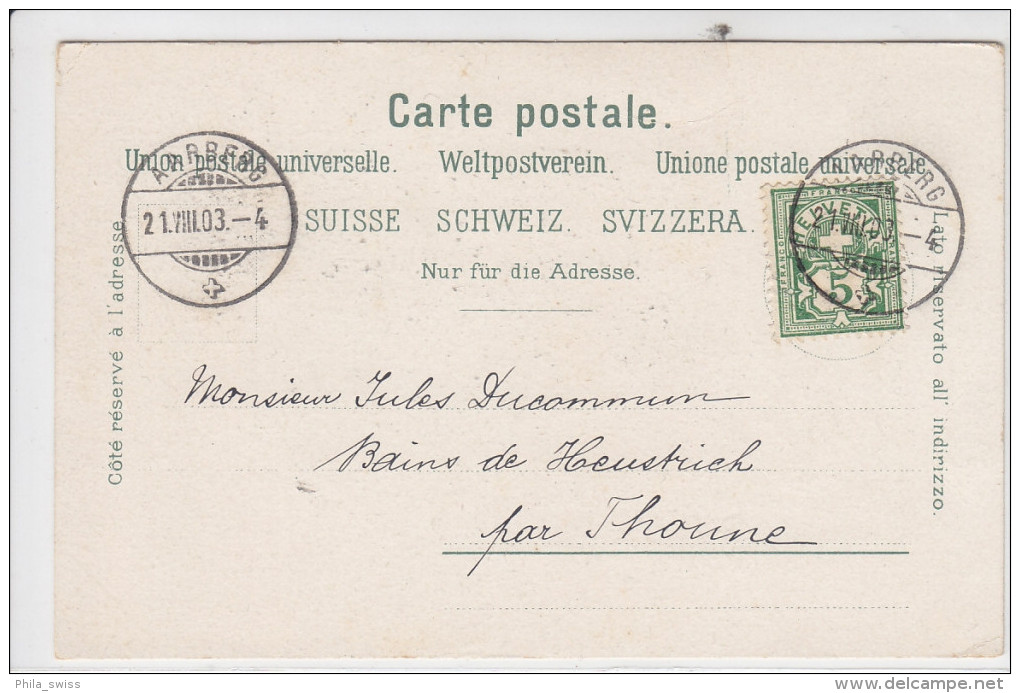 Carte postale.
Union postale universelle. Weltpostverein. Unione postale universale.
SUISSE SCHWEIZ. SVIZZERA.
Nur für die Adresse.
AARBERG
21.VIII.03.–4
AARBERG
21.VIII.03.–4
FRANCO
HELVETIA
FRANCO
5
FRANCO
Côté réservé à l'adresse.
Lato riservato all' indirizzo.
Monsieur Jules Ducommun
Bains de Heustrich
par Thoune
Phila_swiss
delcampe.net